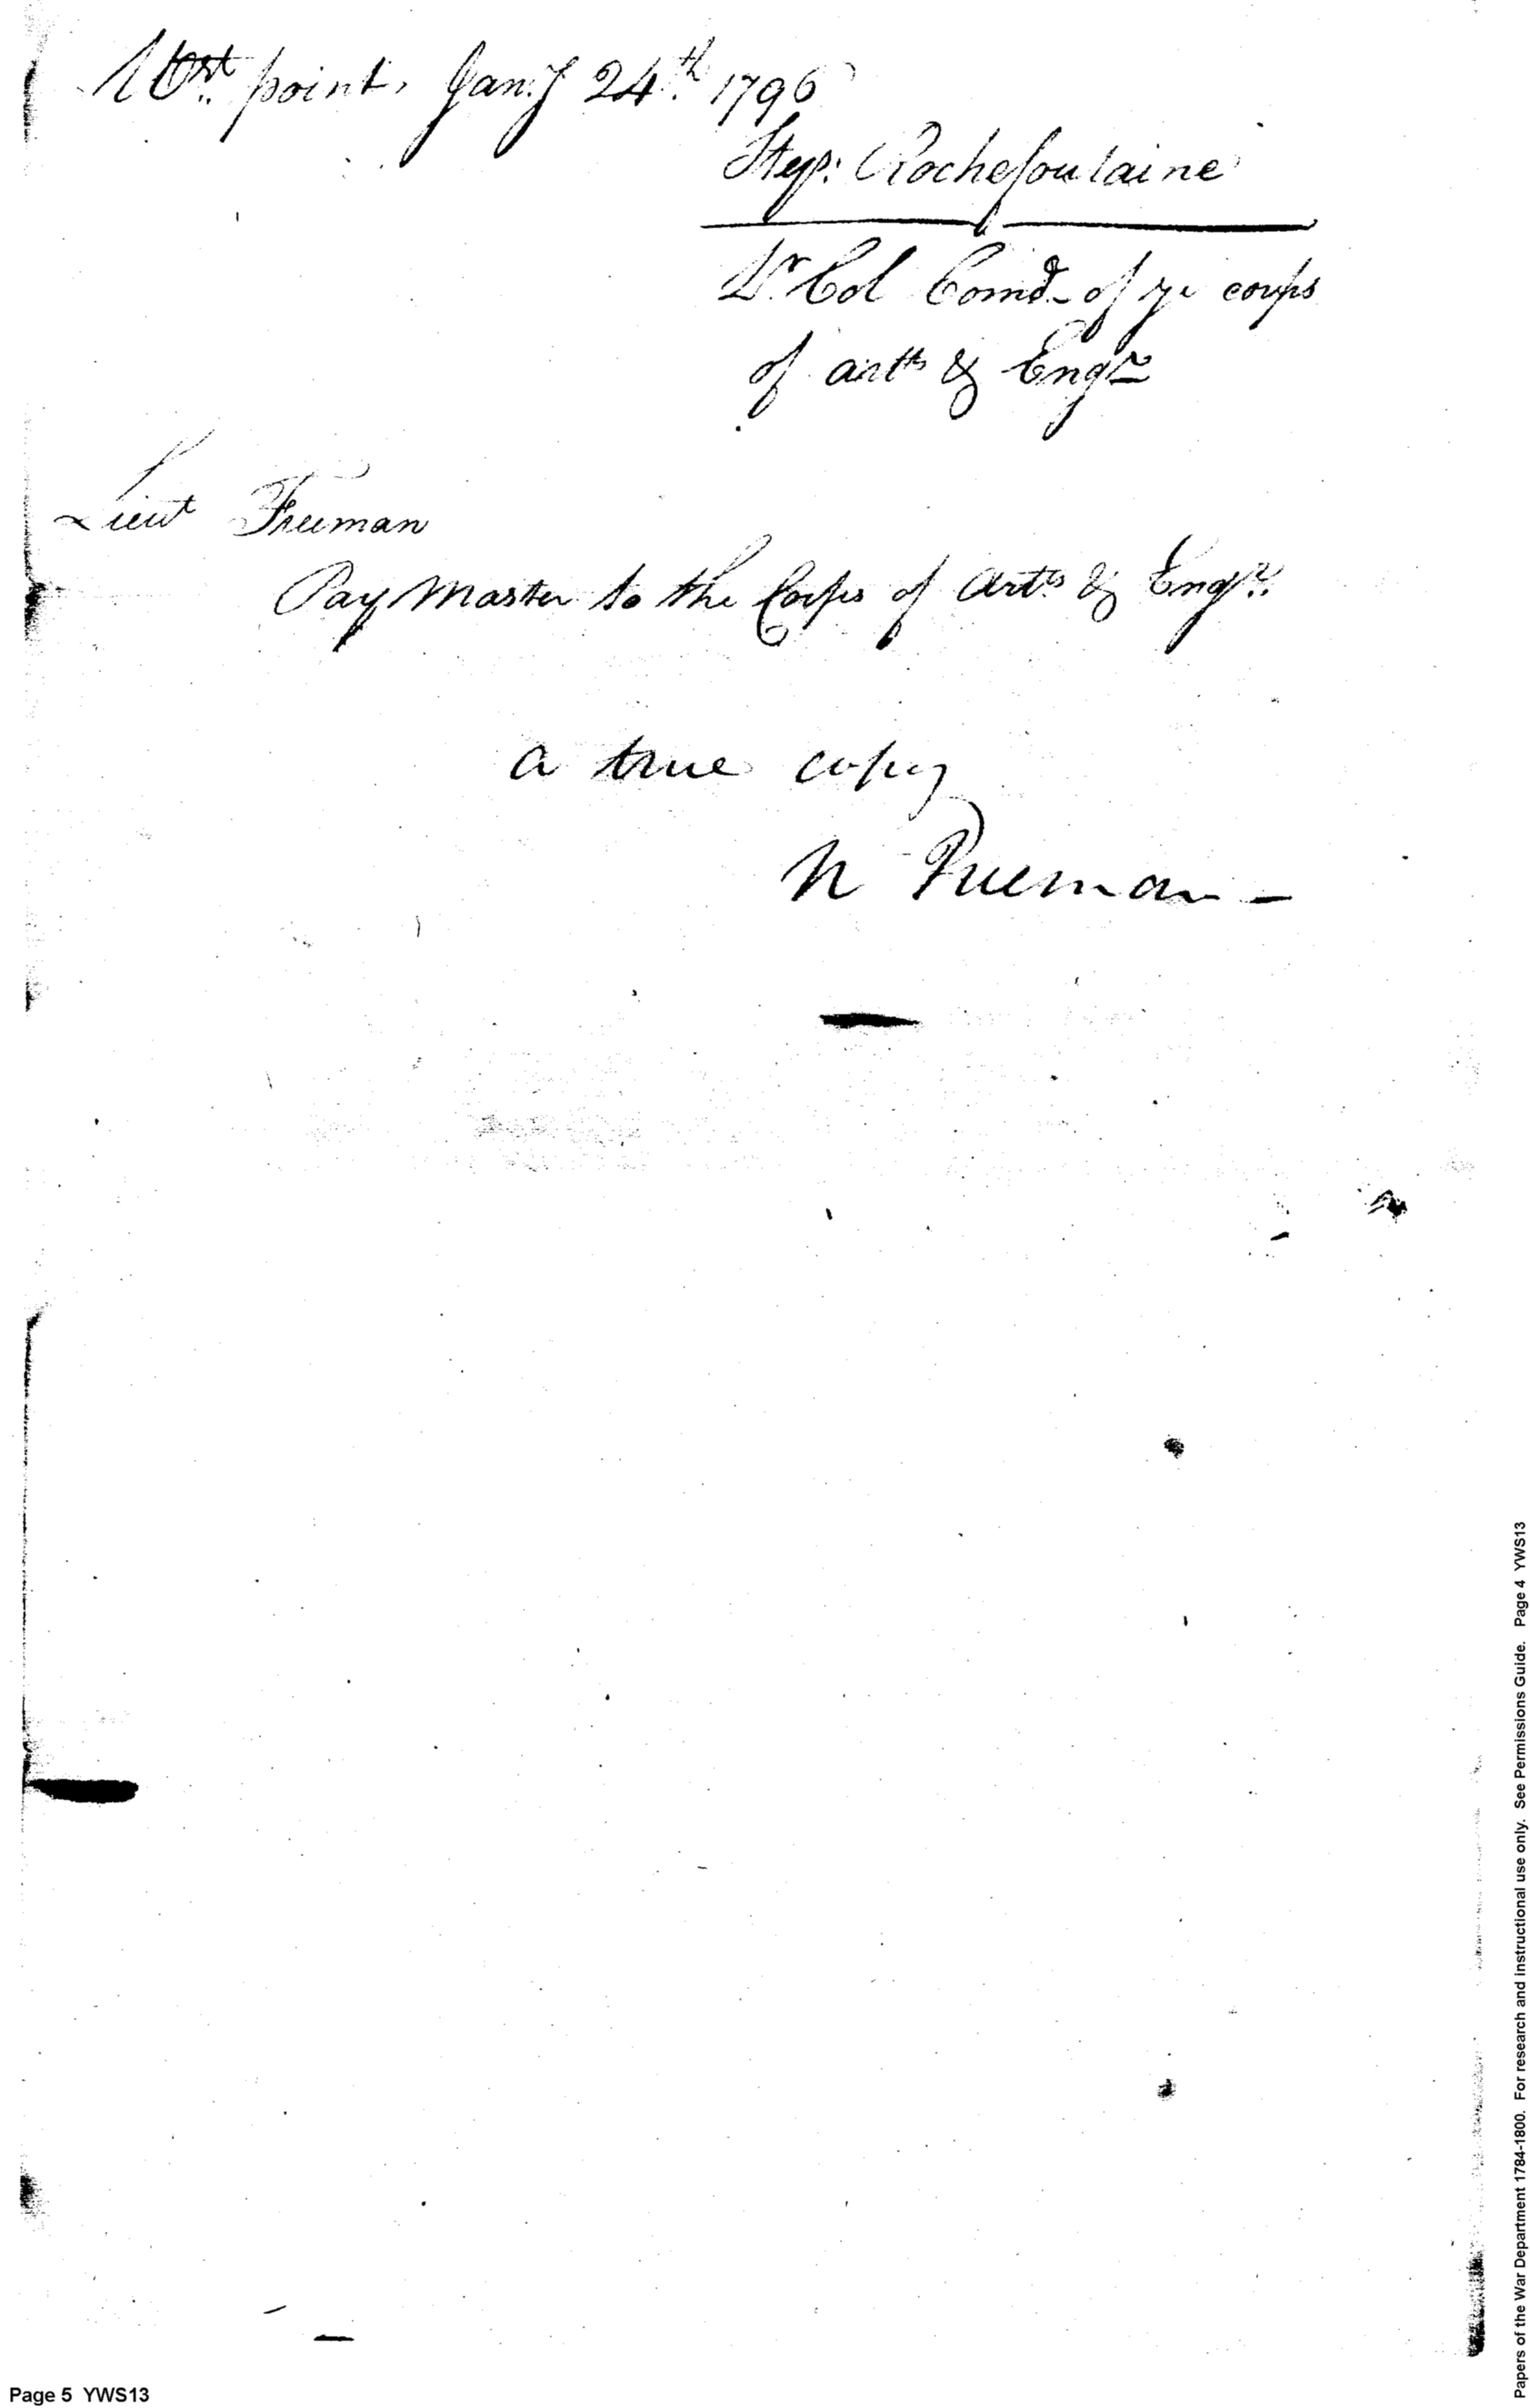 West point, Jan:y 24th 1796
Step: Rochefontaine
Lt Col Comdt of ye corps
of arts & Engrs
Lieut Freeman
Pay Master to the Corps of Arts & Engrs.
a true copy
N Freeman -
Papers of the War Department 1784-1800. For research and instructional use only. See Permissions Guide. Page 4 YWS13
Page 5 YWS13